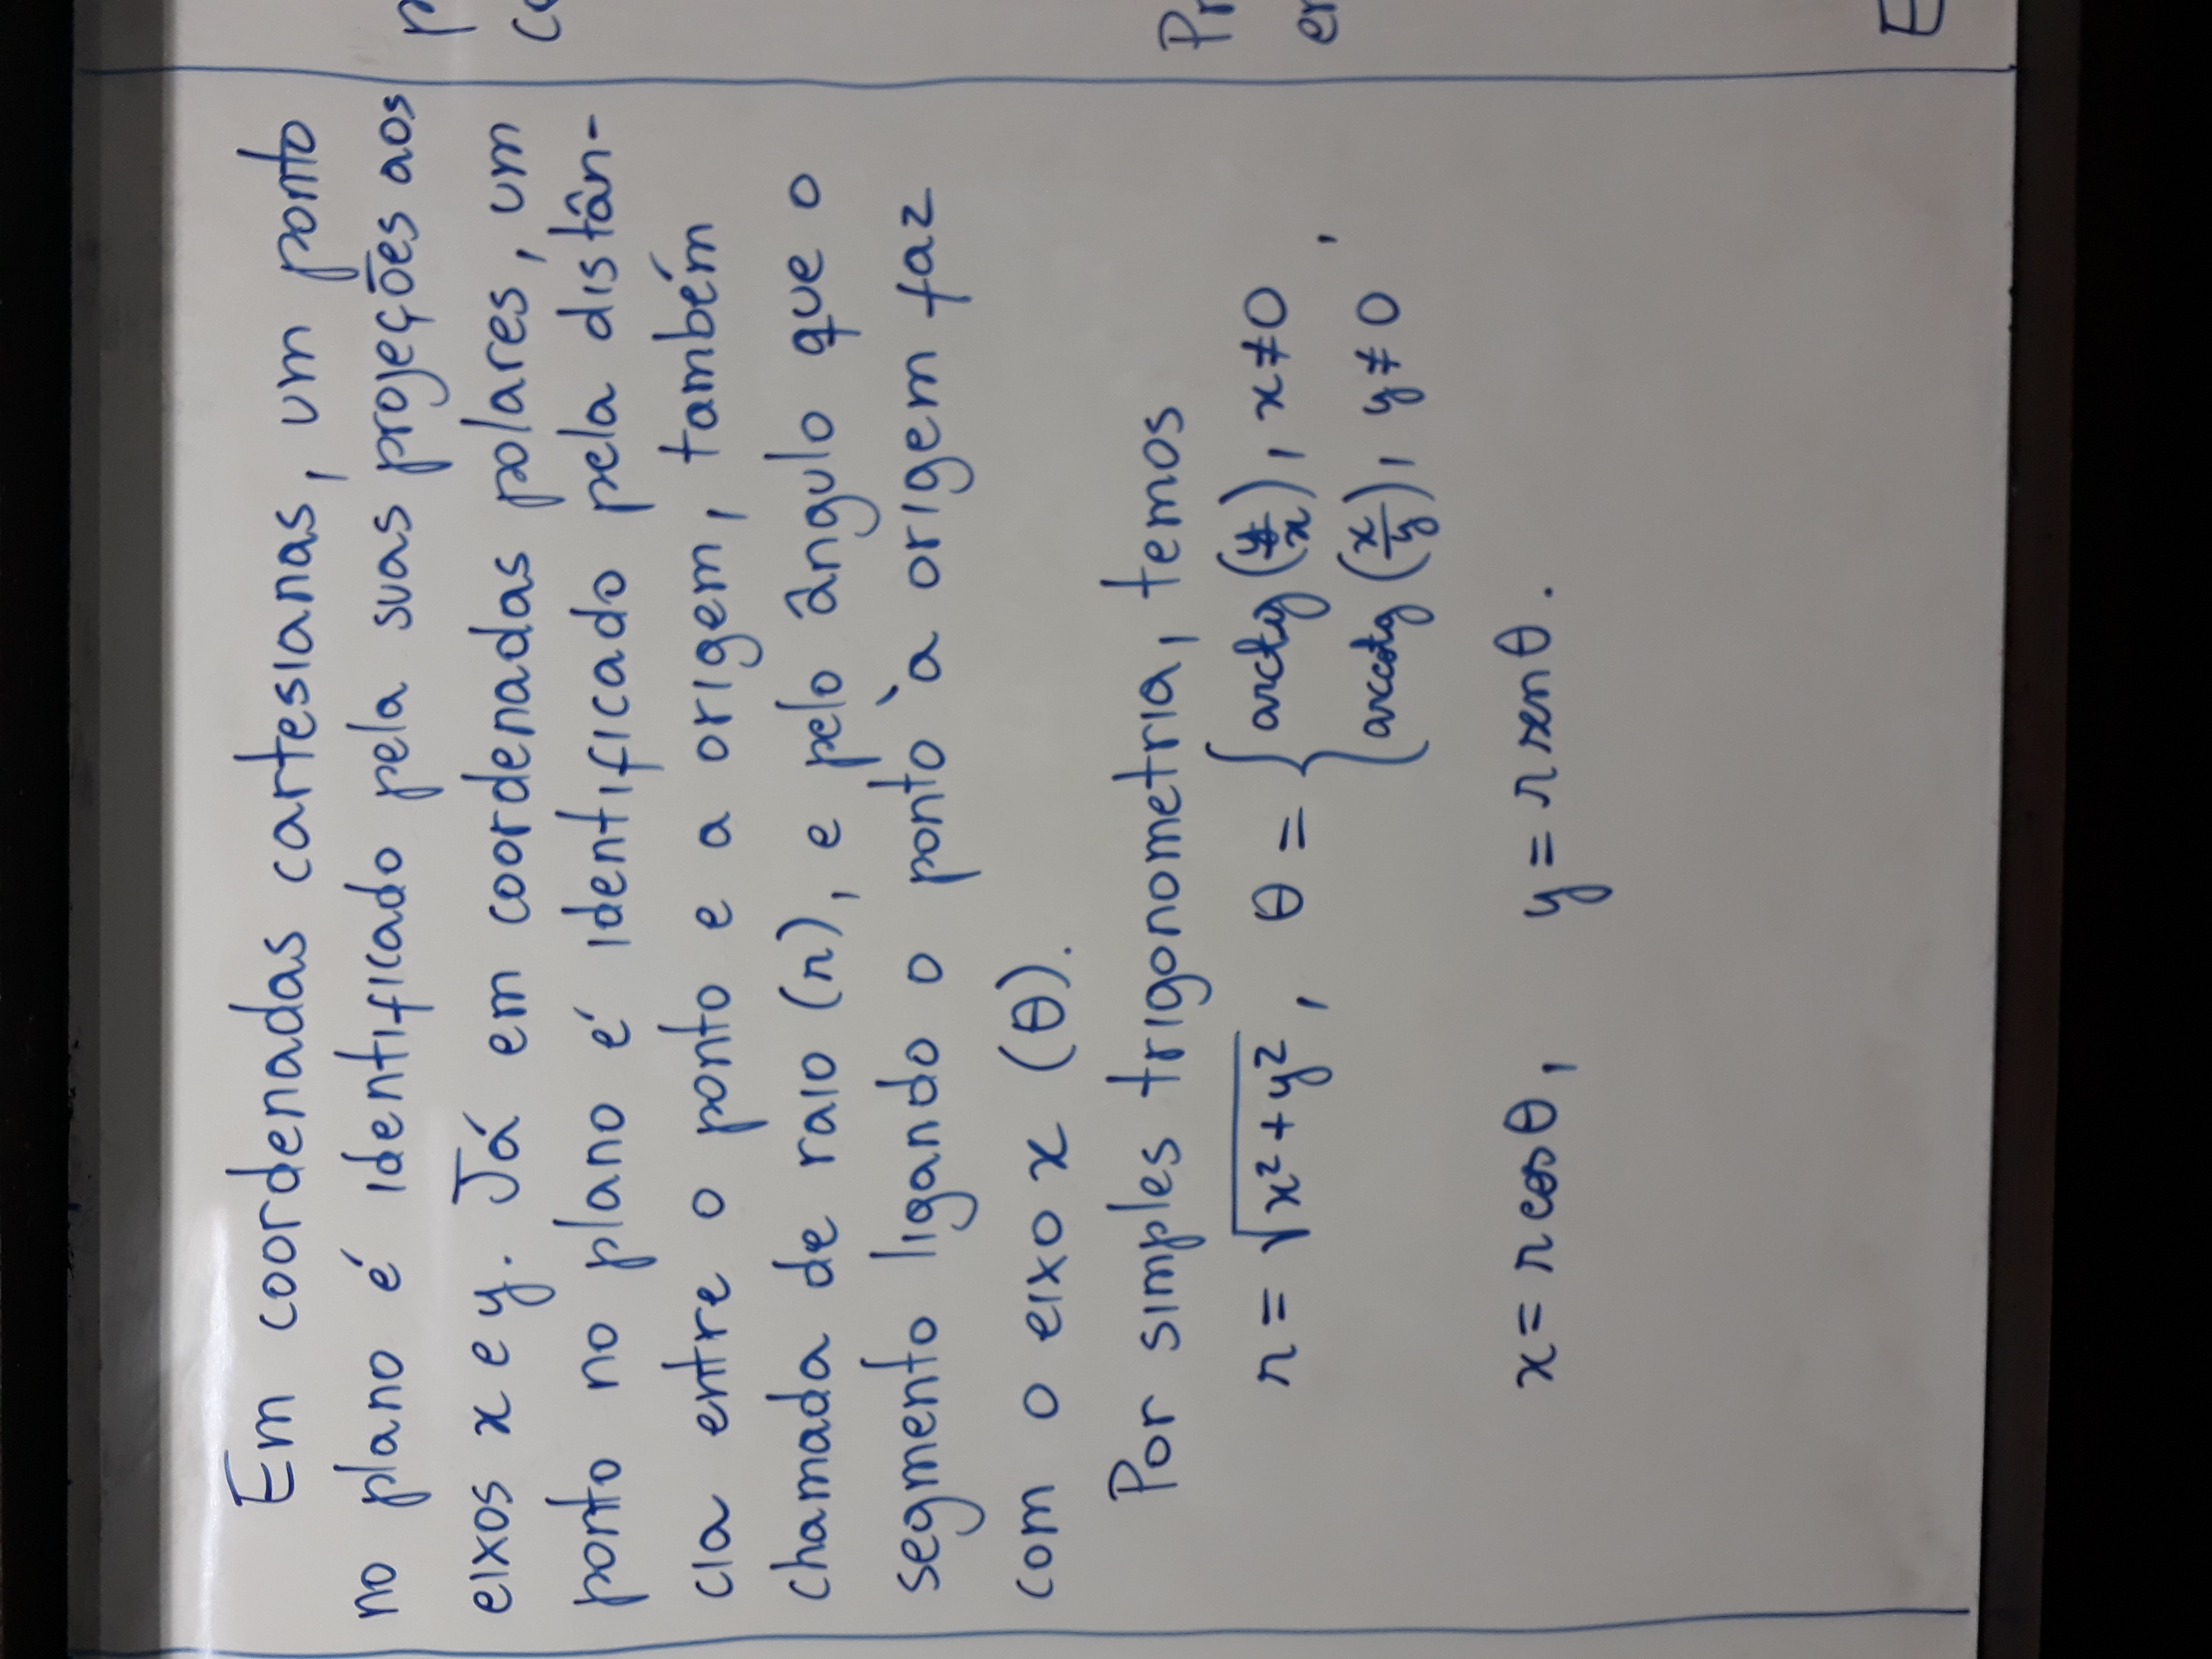 Em coordenadas cartesianas, um ponto
no plano é identificado pela suas projeções aos
eixos x e y. Já em coordenadas polares, um
ponto no plano é identificado pela distân-
cia entre o ponto e a origem, também
chamada de raio (r), e pelo ângulo que o
segmento ligando o ponto à origem faz
com o eixo x (θ).
Por simples trigonometria, temos
r = √(x² + y²), θ = { arctg (y/x), x ≠ 0
arccotg (x/y), y ≠ 0 ,
x = r cos θ, y = r sen θ.